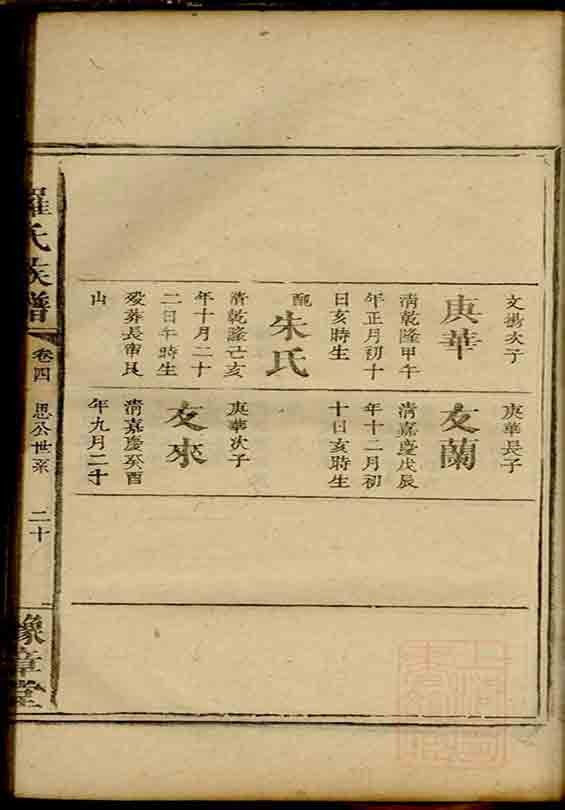 文揚次子
庚華
清乾隆甲午
年正月初十
日亥時生
配
朱氏
清乾隆己亥
年十月二十
二日午時生
歿葬長甫艮
山
庚華長子
友蘭
清嘉慶戊辰
年十二月初
十日亥時生
庚華次子
友來
清嘉慶癸酉
年九月二十
羅氏族譜
卷四
思公世系
二十
豫章堂